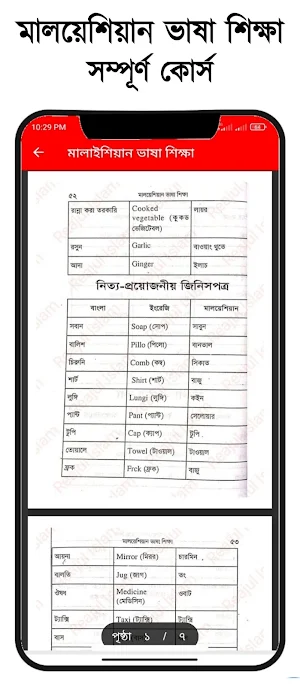 মালয়েশিয়ান ভাষা শিক্ষা
সম্পূর্ণ কোর্স
10:29 PM
মালাইশিয়ান ভাষা শিক্ষা
৫২ মালয়েশিয়ান ভাষা শিক্ষা
রান্না করা তরকারি Cooked vegetable (কুকড ভেজিটেবল) লায়র
রসুন Garlic বাওয়াং পুতে
আদা Ginger ইলাচ
নিত্য-প্রয়োজনীয় জিনিসপত্র
বাংলা ইংরেজি মালয়েশিয়ান
সবান Soap (সোপ) সাবুন
বালিশ Pillo (পিলো) বানতাল
চিরুনি Comb (কম্ব) সিকাত
শার্ট Shirt (শার্ট) বাজু
লুঙ্গি Lungi (লুঙ্গি) কইন
প্যান্ট Pant (প্যান্ট) সেলোয়ার
টুপি Cap (ক্যাপ) টুপি
তোয়ালে Towel (টাওয়াল) টাওয়াল
ফ্রক Frck (ফ্রক) বাজু
মালয়েশিয়ান ভাষা শিক্ষা ৫৩
আয়না Mirror (মিরর) চারমিন
বালতি Jug (জাগ) তং
ঔষধ Medicine (মেডিসিন) ওবাট
ট্যাক্সি Taxi (ট্যাক্সি) ট্যাক্সি
বাস
পৃষ্ঠা ১ / ৭